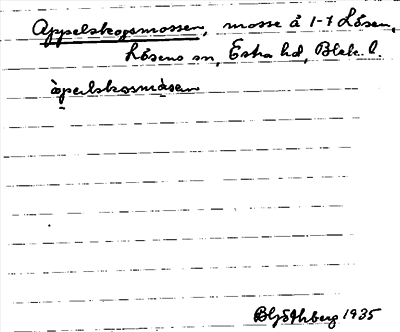 Appelskogsmossen, mosse å 1-7 Lösen,
Lösens sn, Östra hd, Blek. l.
àpelskosmåsen
1935